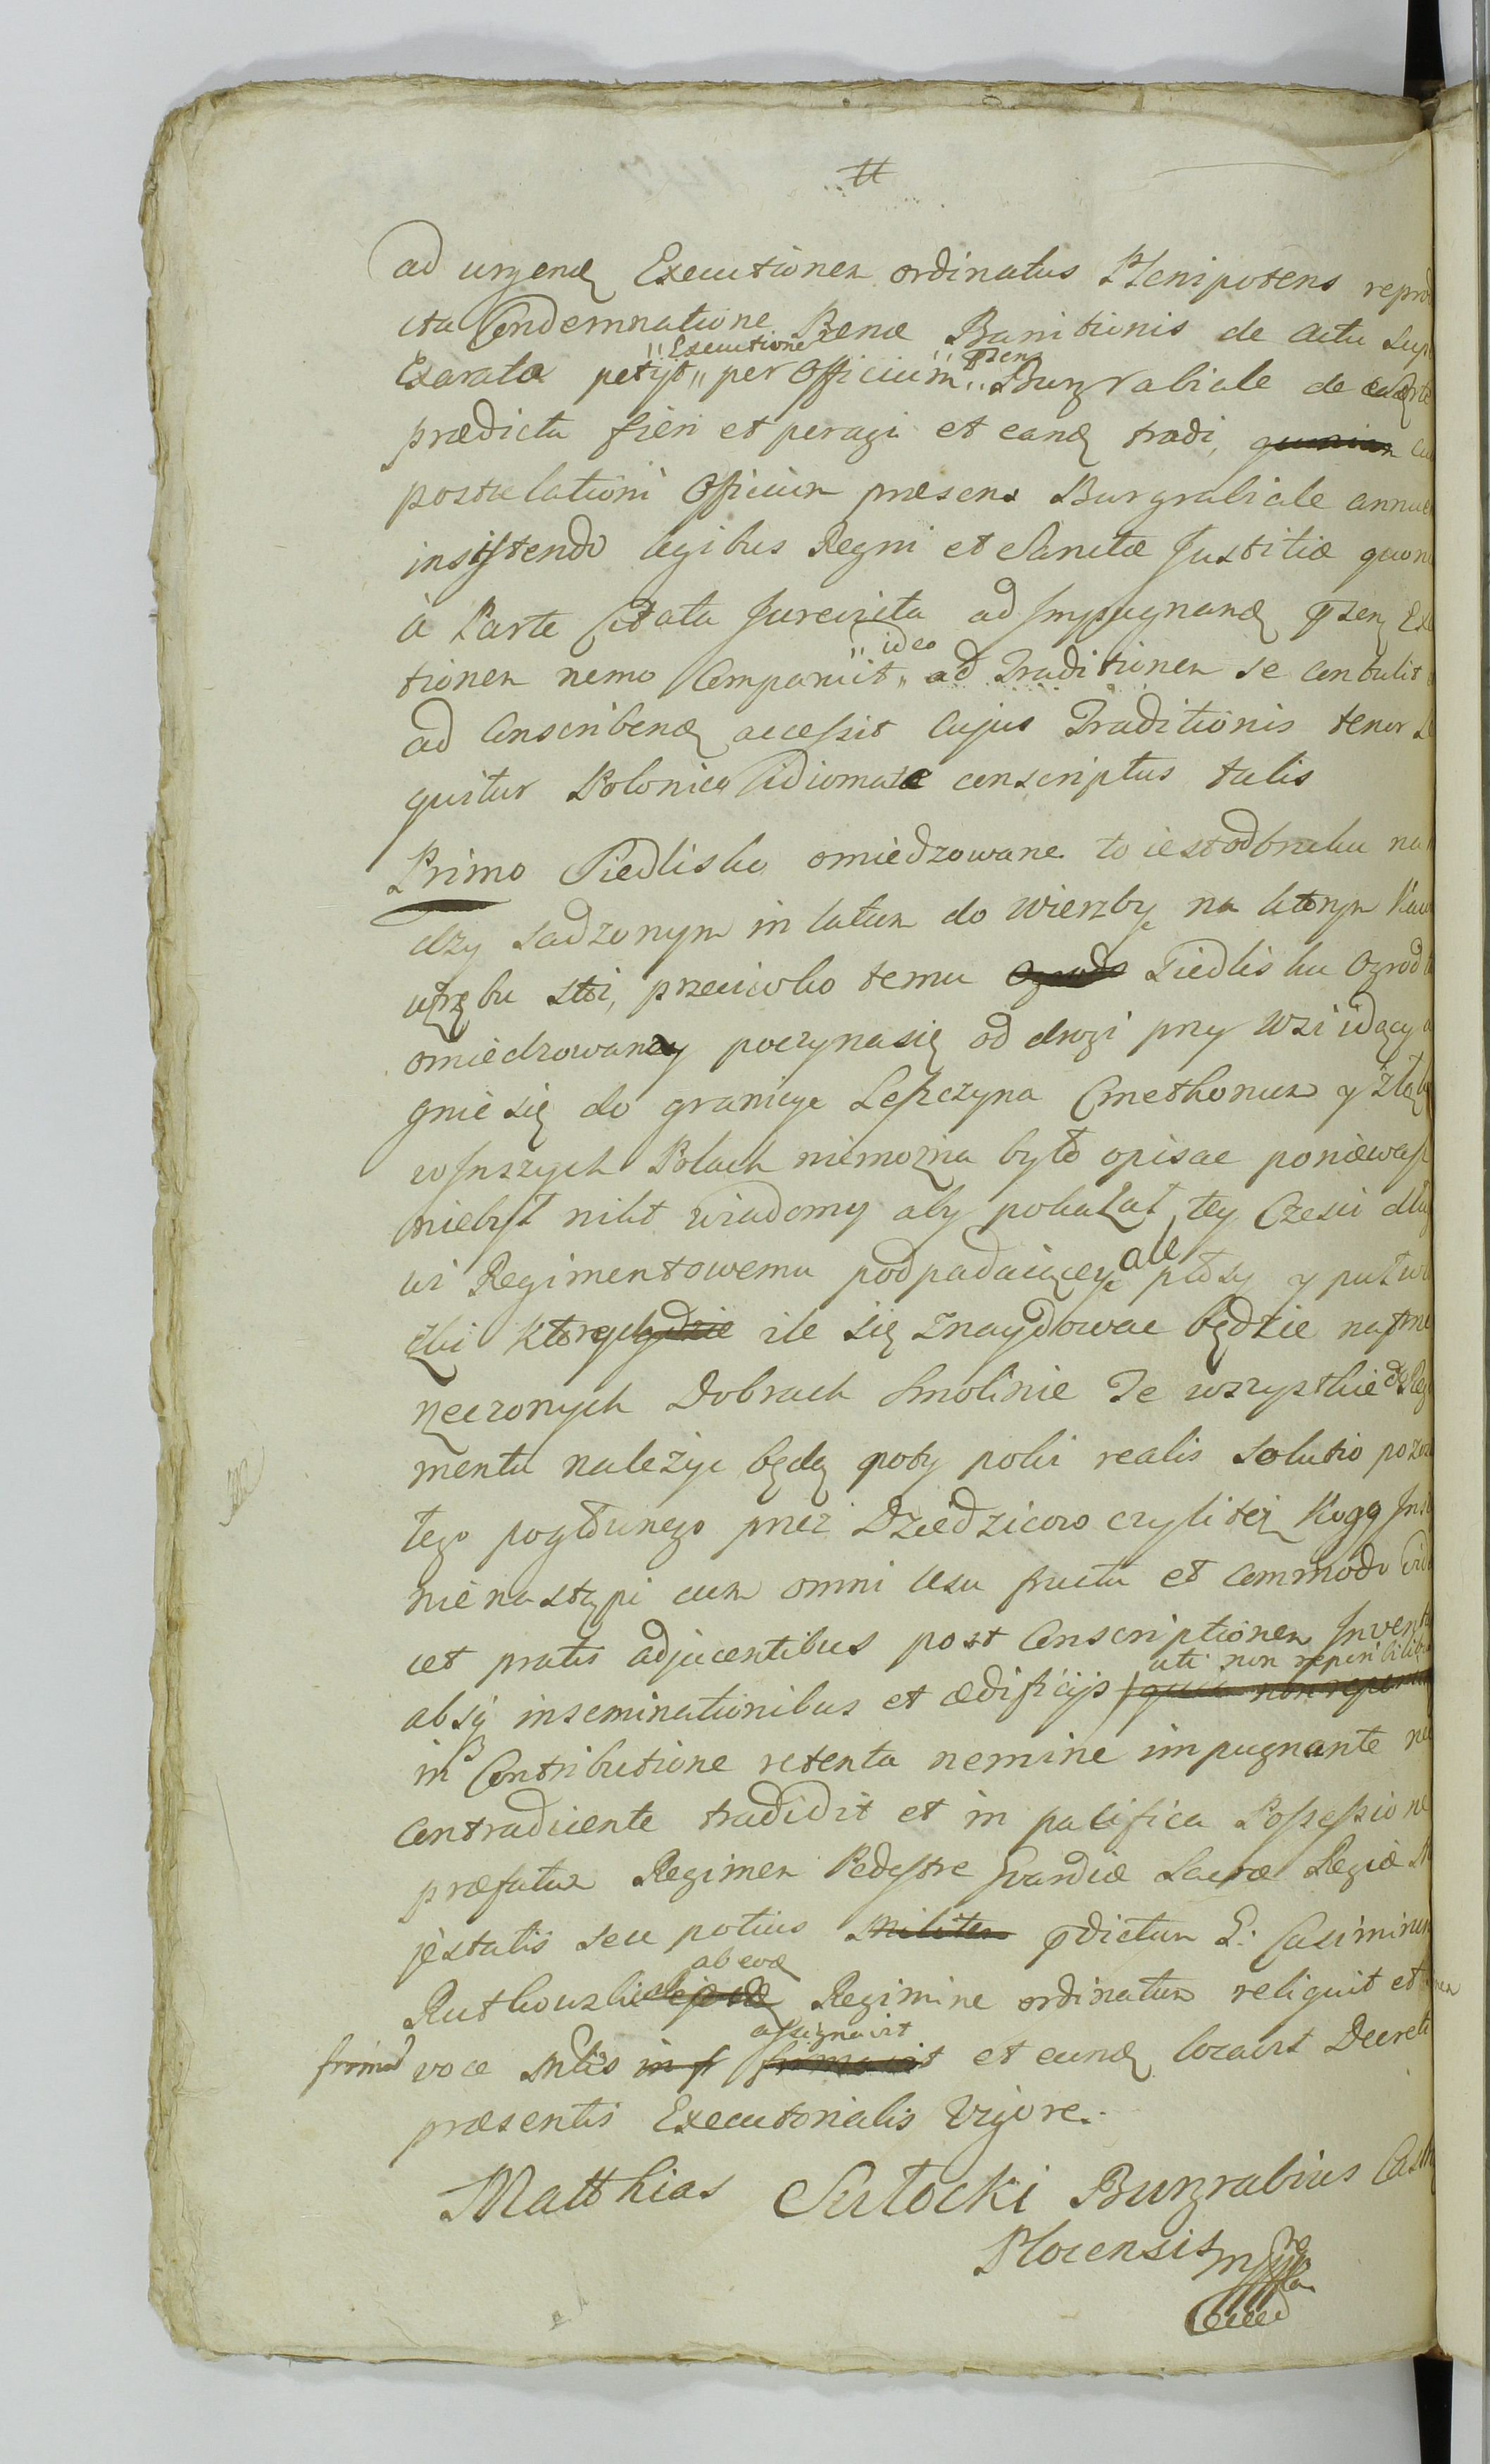 ad urgend Executionem ordinatus Plenipotens reprod
cta Condemnatione Pœnæ Banitionis de actu Sup
"Executione" "Præsens
Exarata petyt " per Officium " Burgrabiale de
prædicta fieri et peragi et eand tradi,
postulationi Officium præsens Burgrabiale annue
insistendo legibus Regni et Sanctæ Justitiæ quon
à Parte Citata Jurevicta ad Impugnand præsen Exe
" ideo
tionem nemo Comparuit " ad Traditionem se contulit
ad Conscribend accessit Cujus Traditionis tenor Se
quitur Polonico idiomate conscriptus talis
Primo Siedlisko omiedzowane to iest od bruku na
dzy sadzonym in latum do wierzby na ktorym Kaw
zrębu stoi, przeciwko temu Siedlisku Ogrod
omiedzowany poczyna się od drogi przy Wsi idący
gnie się do granicy Leszczyna Cmethonum y
w Inszych Polach niemożna było opisac poniewasz
niebył nikt wiadomy aby pokazał tey Czesci dlug
wi Regimentowemu podpadaiącey ale płosy y
ile się znaydowac będzie na
nęczonych Dobrach Smolinie Te wszystkie do Regi
mentu należyc będą poty poki realis Solutio
tego pogłownego przez Dziedzicow czyli też Kogo Ins
nie nastąpi cum omni usu fructu et commodo
cet pratis adjacentibus post Conscriptionem Invent
uti non reperibilib
absq inseminationibus et ædificijs quia non
in Contributione retenta nemine impugnante
contradicente tradidit et in pacifica Possessione
præfatum Regimen Pedestre Gvardiæ Sacræ Regiæ M
jestatis seu potius Militem prædictum G: Casimirum
ab eod
Rutkowski Regimine ordinatum reliquit et
assignavit
firmat voce Mtis in et eund locavit Decreti
præsentis Executorialis Vigore.
Matthias Sutocki Burgrabius Cast
Plocensis mp